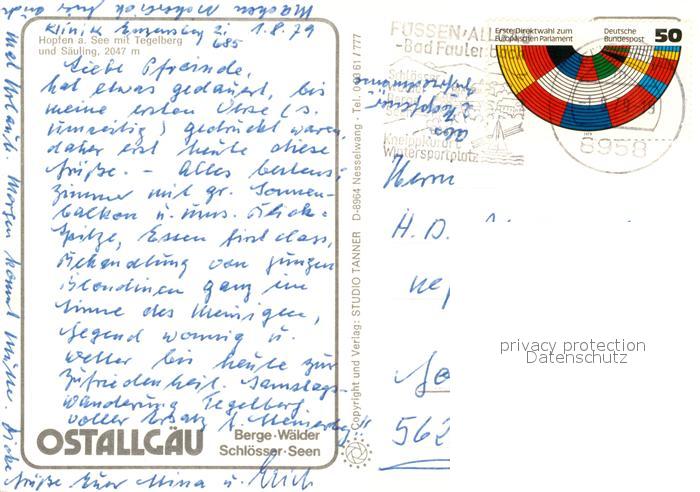 Klinik Enzensberg Zi. 685 1.8.79
Hopfen a. See mit Tegelberg
und Säuling, 2047 m
Liebe Pfreinde,
hat etwas gedauert, bis
meine ersten Verse (s.
umseitig) gedruckt waren,
daher erst heute diese
Grüße. – Alles bestens:
Zimmer mit gr. Sonnen-
balkon u. Blick:
Spitze, Essen first class,
Behandlung von jungen
Blondinen ganz im
Sinne des Meinigen,
Gegend wonnig u.
Wetter bis heute zur
Zufriedenheit. Samstags-
wanderung Tegelberg
voller Ersatz f. Meinerzhg!!
OSTALLGÄU
Berge·Wälder
Schlösser·Seen
Grüße Euer Mina u. Erich
mal Urlaub. Morgen kommt
© Copyright und Verlag: STUDIO TANNER D-8964 Nesselwang · Tel. 0 83 61 / 777
FÜSSEN
-Bad Faulen
Schlösser
Kneippkurort
Wintersportplatz
Erste Direktwahl zum
Europäischen Parlament
Deutsche
Bundespost
50
8958
Herrn
H. D.
562
privacy protection
Datenschutz